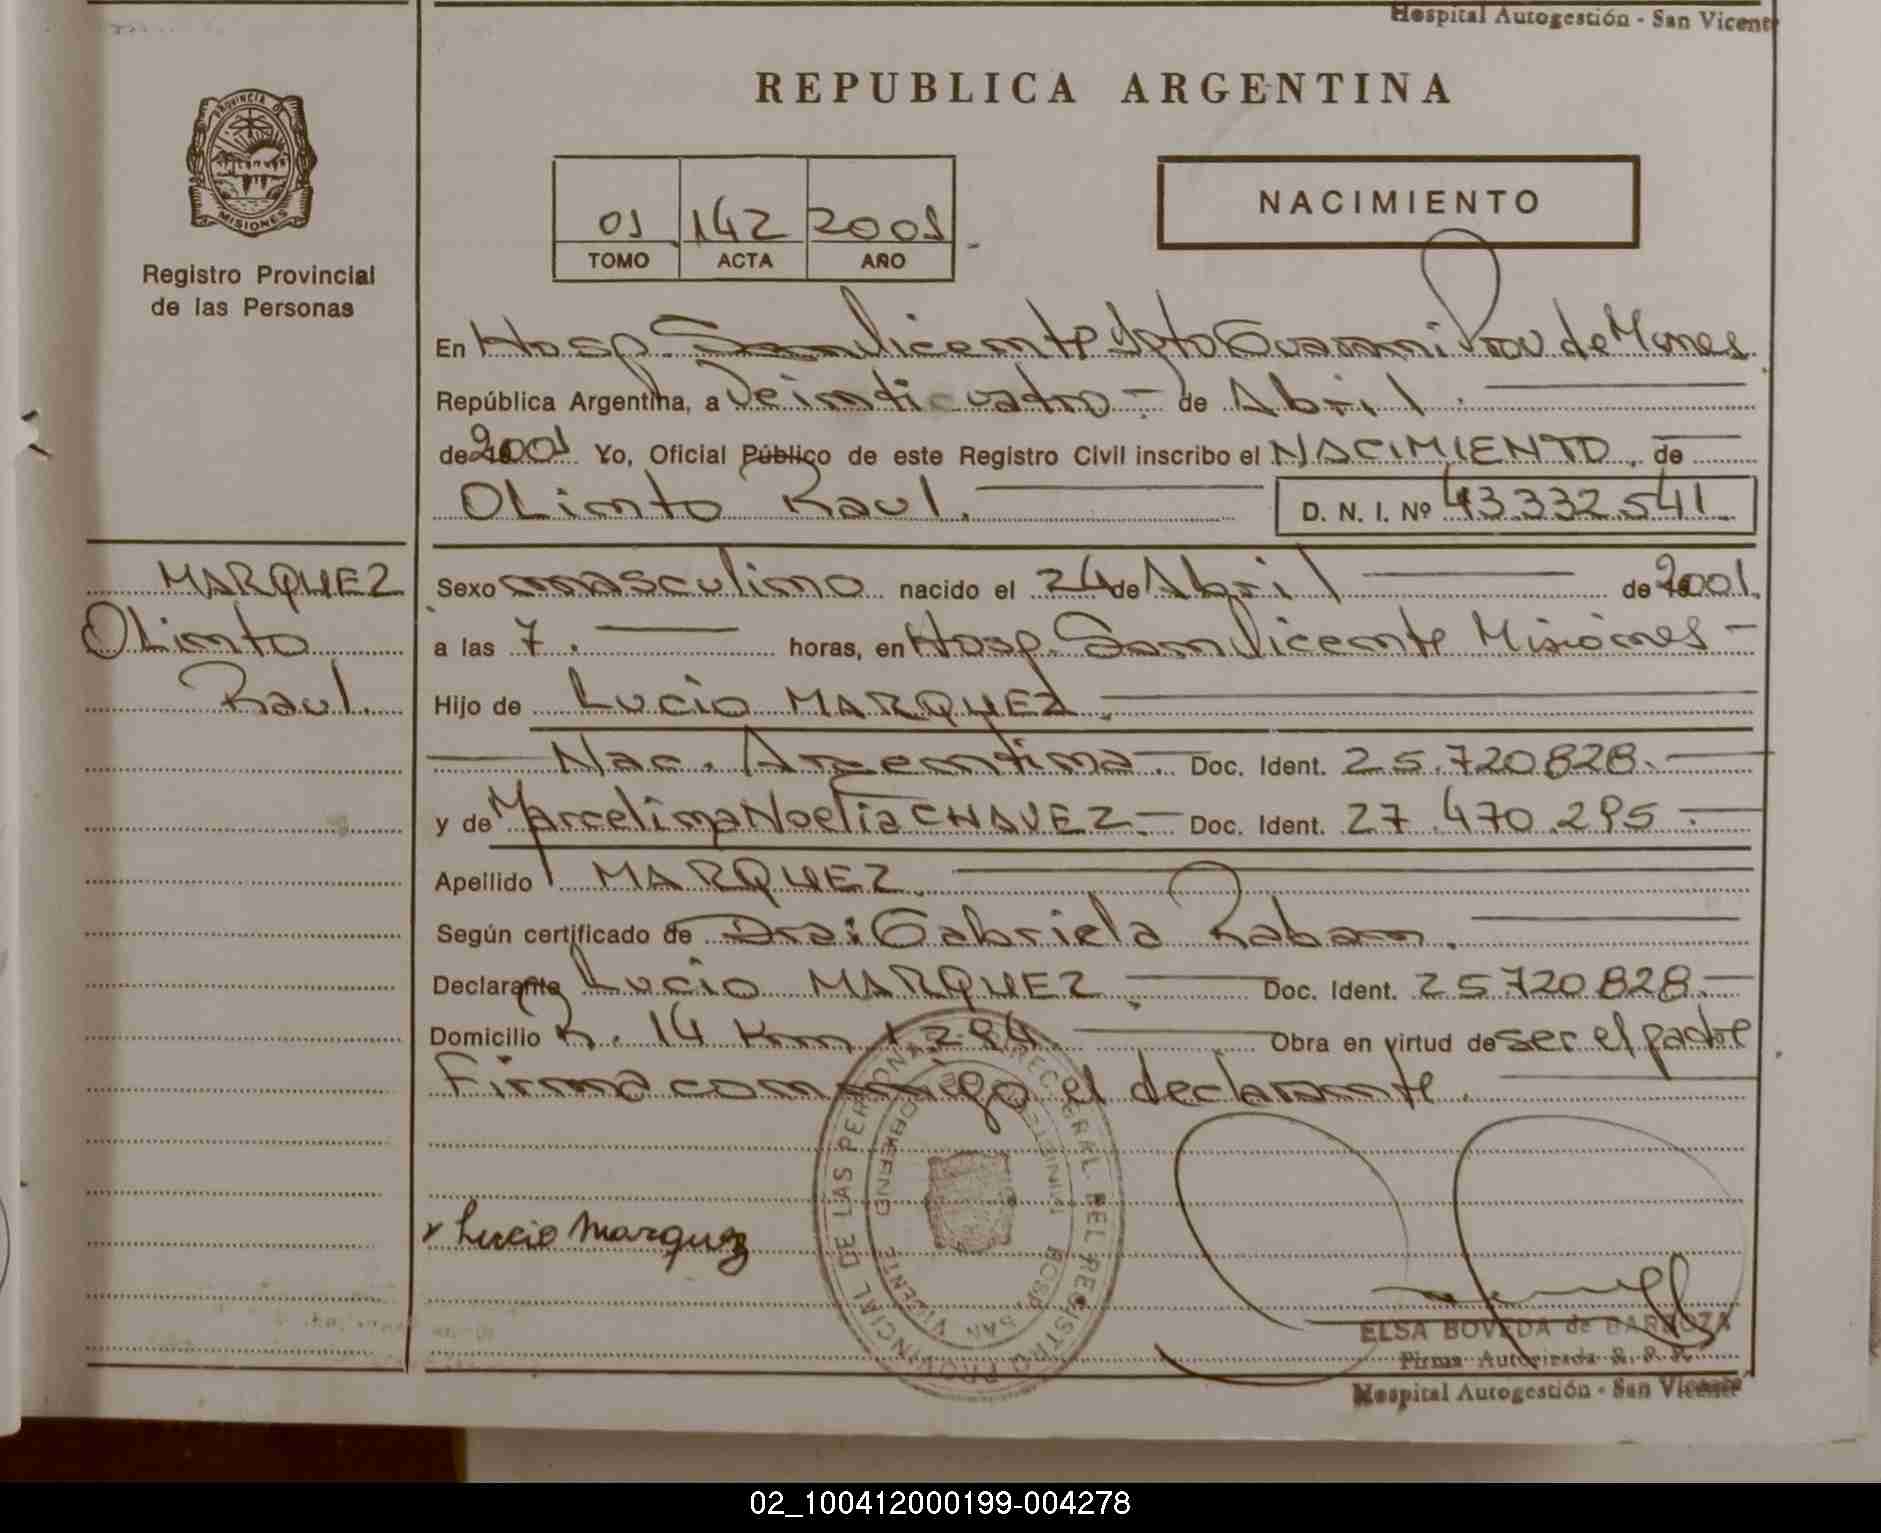 Hospital Autogestión - San Vicente
REPUBLICA ARGENTINA
PROVINCIA DE
MISIONES
Registro Provincial
de las Personas
01 142 2001
TOMO ACTA AÑO
NACIMIENTO
En Hosp. San Vicente Dpto Guarani Prov de Mnes
República Argentina, a Veinticuatro - de Abril.
de 2001 Yo, Oficial Público de este Registro Civil inscribo el NACIMIENTO. de
OLinto Raul.
D. N. I. Nº 43.332.541
MARQUEZ
OLinto
Raul.
Sexo masculino nacido el 24 de Abril de 2001.
a las 7. horas, en Hosp. San Vicente Misiones -
Hijo de Lucio MARQUEZ.
Nac. Argentina. Doc. Ident. 25.720.828.
y de Marcelina Noelia CHAVEZ. Doc. Ident. 27.470.295.
Apellido MARQUEZ.
Según certificado de Dra: Gabriela Raban.
Declarante Lucio MARQUEZ. Doc. Ident. 25.720.828.
Domicilio R. 14 Km 1.284. Obra en virtud de ser el padre
Firma conmigo el declarante.
x Lucio Marquez
ELSA BOVEDA de BARBOZA
Firma Autorizada R. P. P.
Hospital Autogestión - San Vicente
02_100412000199-004278